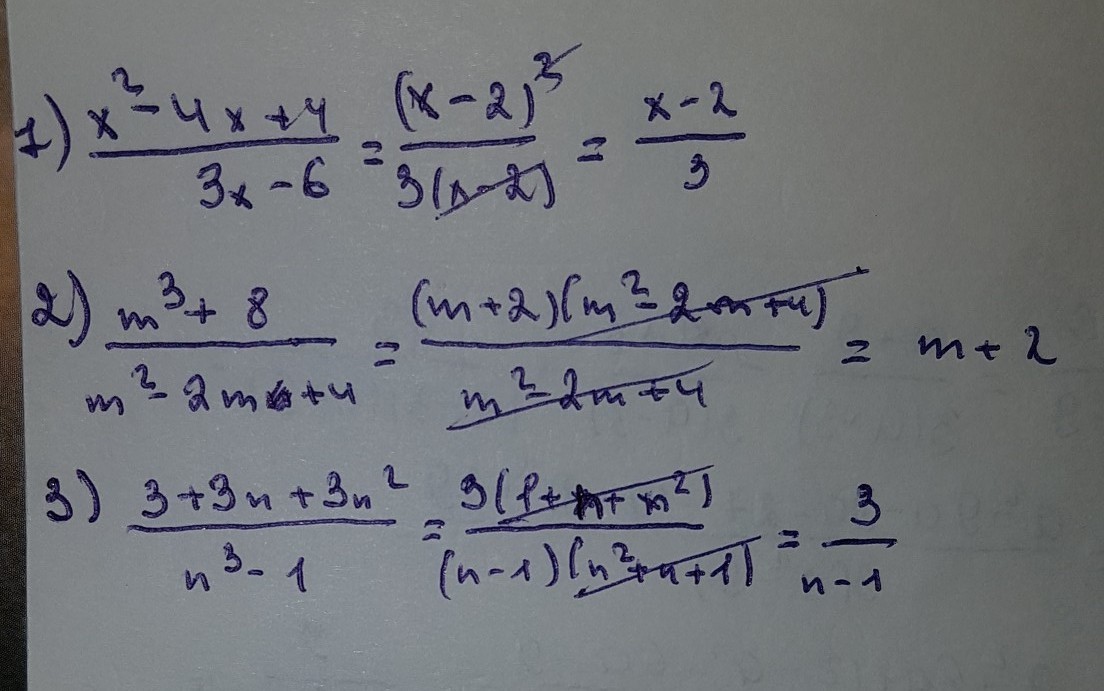 1) (x² - 4x + 4)/(3x - 6) = (x - 2)²/(3(x - 2)) = (x - 2)/3
2) (m³ + 8)/(m² - 2m + 4) = ((m + 2)(m² - 2m + 4))/(m² - 2m + 4) = m + 2
3) (3 + 3n + 3n²)/(n³ - 1) = (3(1 + n + n²))/((n - 1)(n² + n + 1)) = 3/(n - 1)